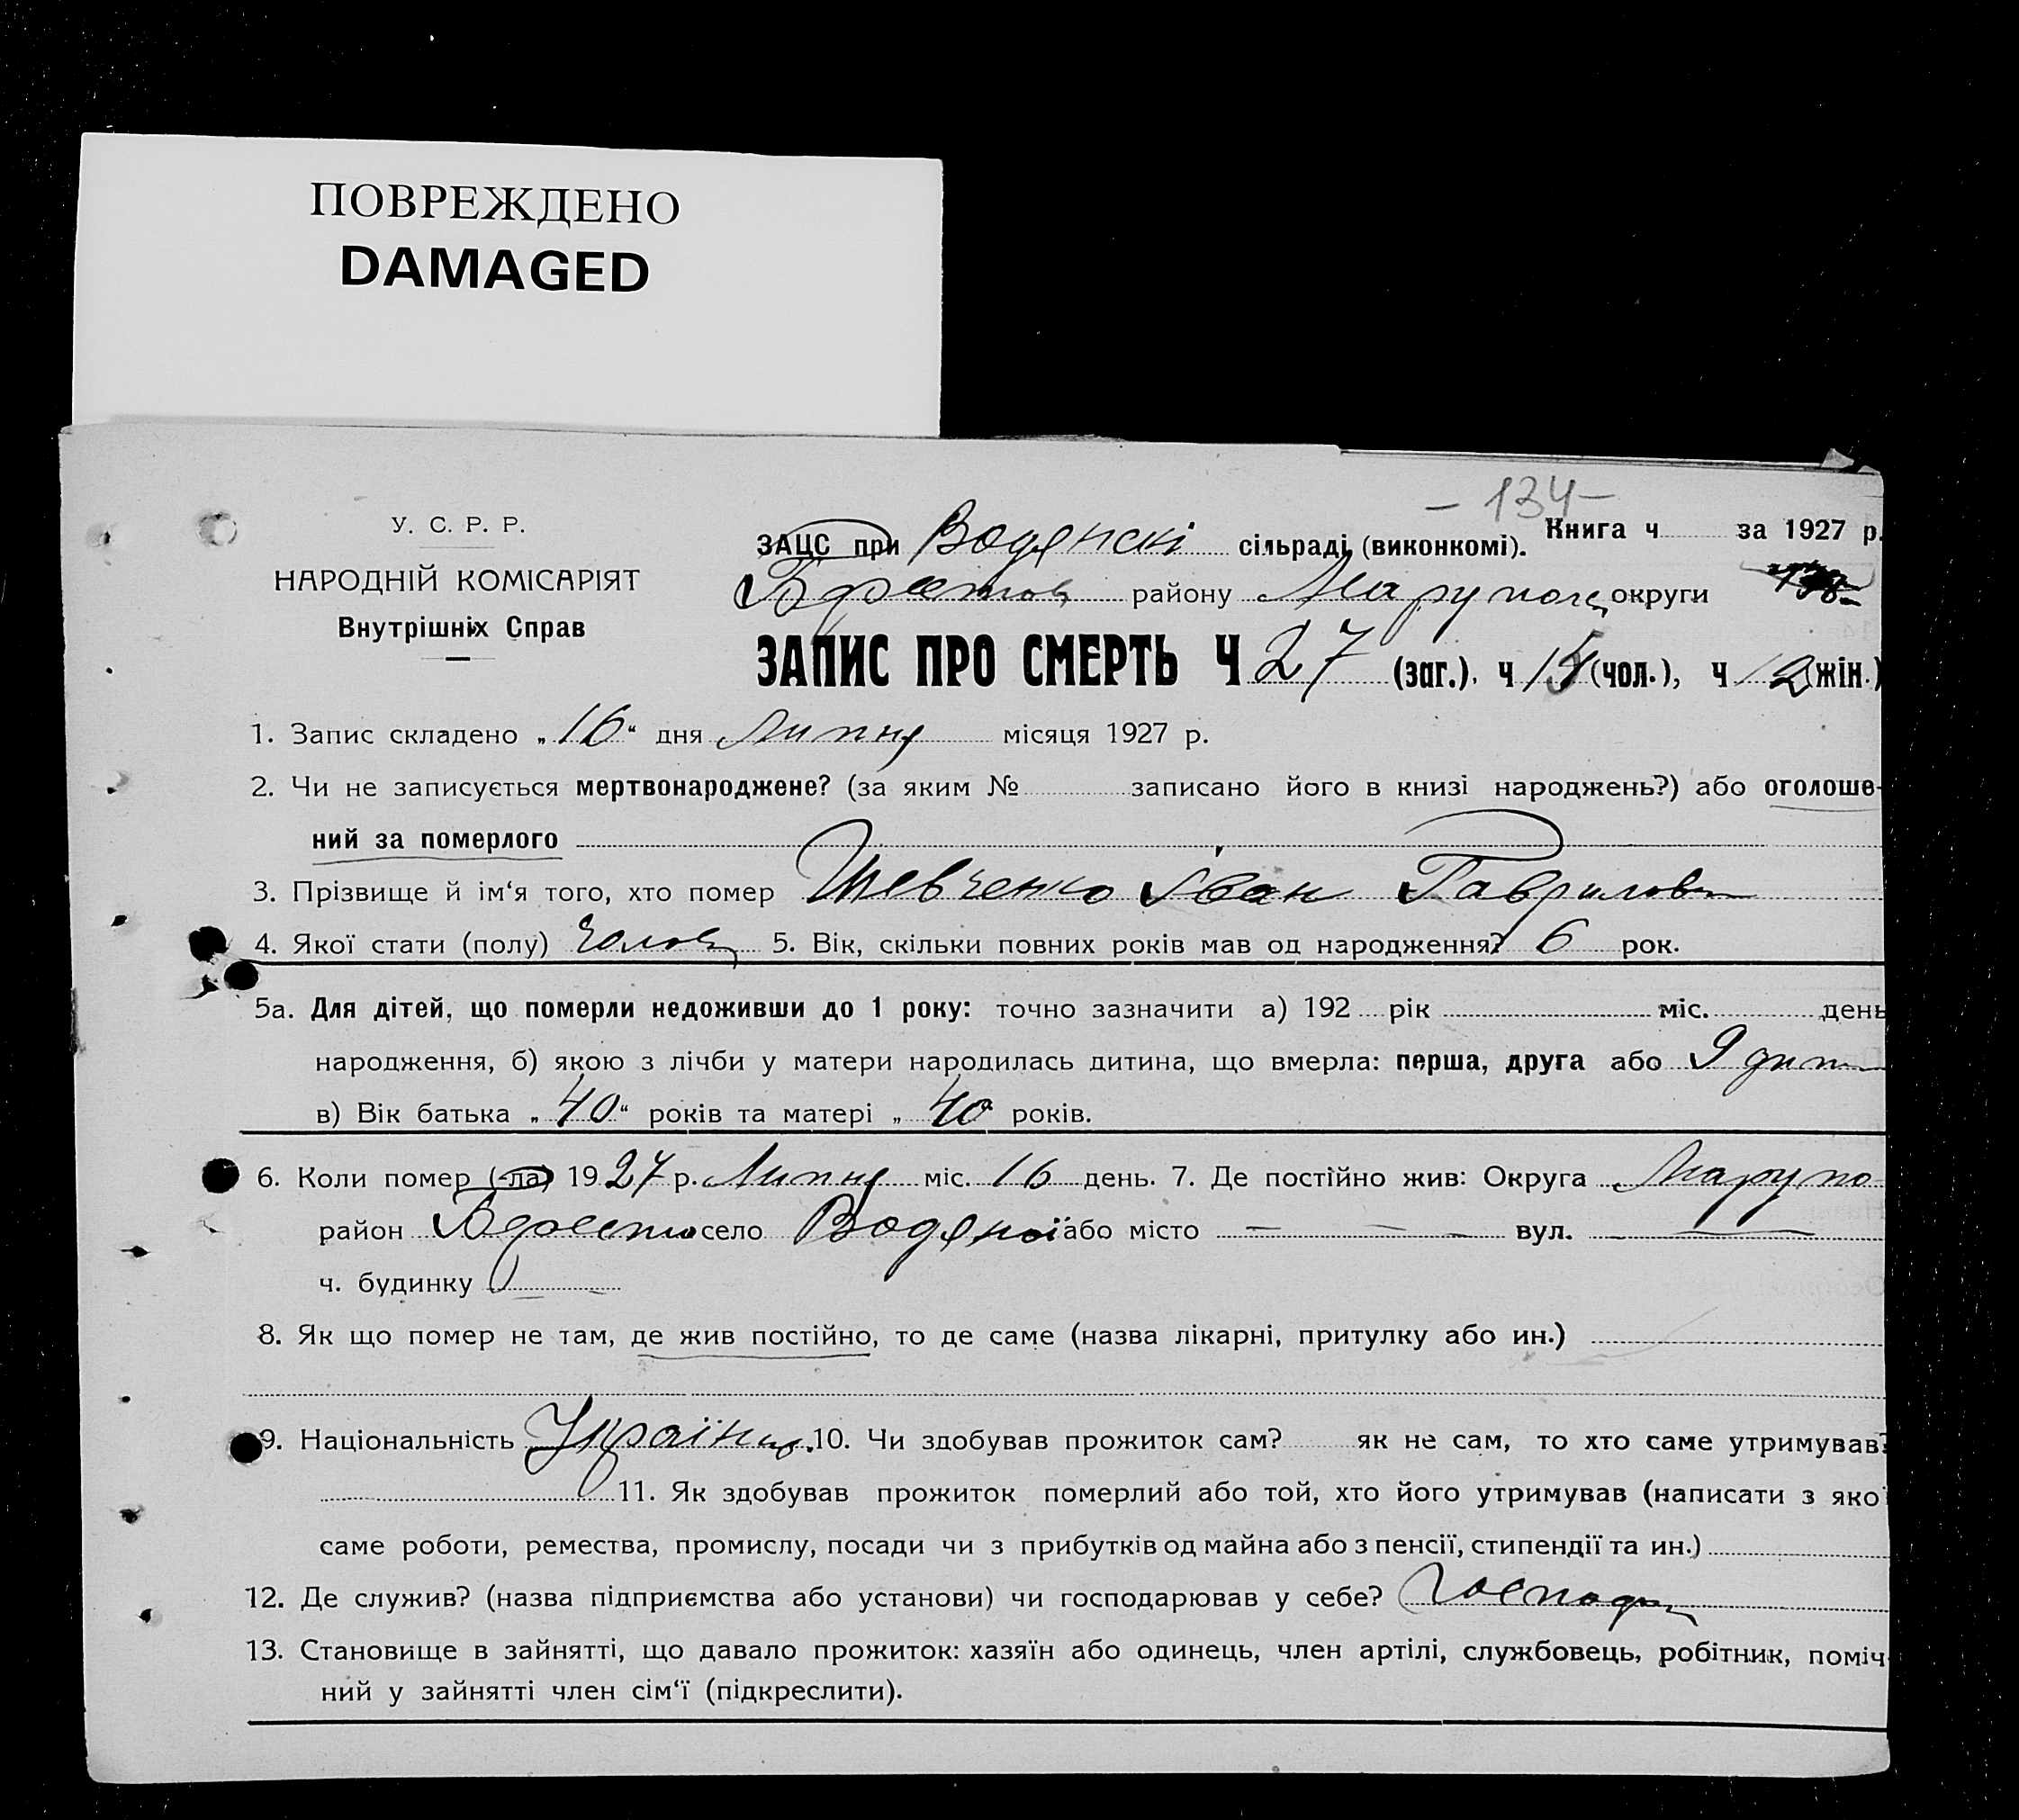 ПОВРЕЖДЕНО
DAMAGED
- 134 -
У. С. Р. Р.
НАРОДНІЙ КОМІСАРІЯТ
Внутрішніх Справ
Книга ч за 1927 р.
ЗАЦС при Водянскі сільраді (виконкомі).
району Маруполц округи
ЗАПИС ПРО СМЕРТЬ Ч 27 (заг.), ч 15 (чол.), ч 12 (жін.)
1. Запис складено „16“ дня Липня місяця 1927 р.
2. Чи не записується мертвонароджене? (за яким № записано його в книзі народжень?) або оголоше-
ний за померлого
3. Прізвище й ім‘я того, хто помер Шевченко Іван Гаврилов
4. Якої стати (полу) Чолов 5. Вік, скільки повних років мав од народження? 6 рок.
5а. Для дітей, що померли недоживши до 1 року: точно зазначити а) 192 рік міс. день
народження, б) якою з лічби у матери народилась дитина, що вмерла: перша, друга або 9 дит
в) Вік батька „40“ років та матері „40“ років.
6. Коли помер (-ла) 1927 р. Липня міс. 16 день. 7. Де постійно жив: Округа Марупо
район село Водяної або місто — — — вул. —
ч. будинку
8. Як що помер не там, де жив постійно, то де саме (назва лікарні, притулку або ин.)
9. Національність Українц. 10. Чи здобував прожиток сам? як не сам, то хто саме утримував?
11. Як здобував прожиток померлий або той, хто його утримував (написати з якої
саме роботи, ремества, промислу, посади чи з прибутків од майна або з пенсії, стипендії та ин.)
12. Де служив? (назва підприємства або установи) чи господарював у себе? Господ
13. Становище в зайнятті, що давало прожиток: хазяїн або одинець, член артілі, службовець, робітник, поміч-
ний у зайнятті член сім‘ї (підкреслити).